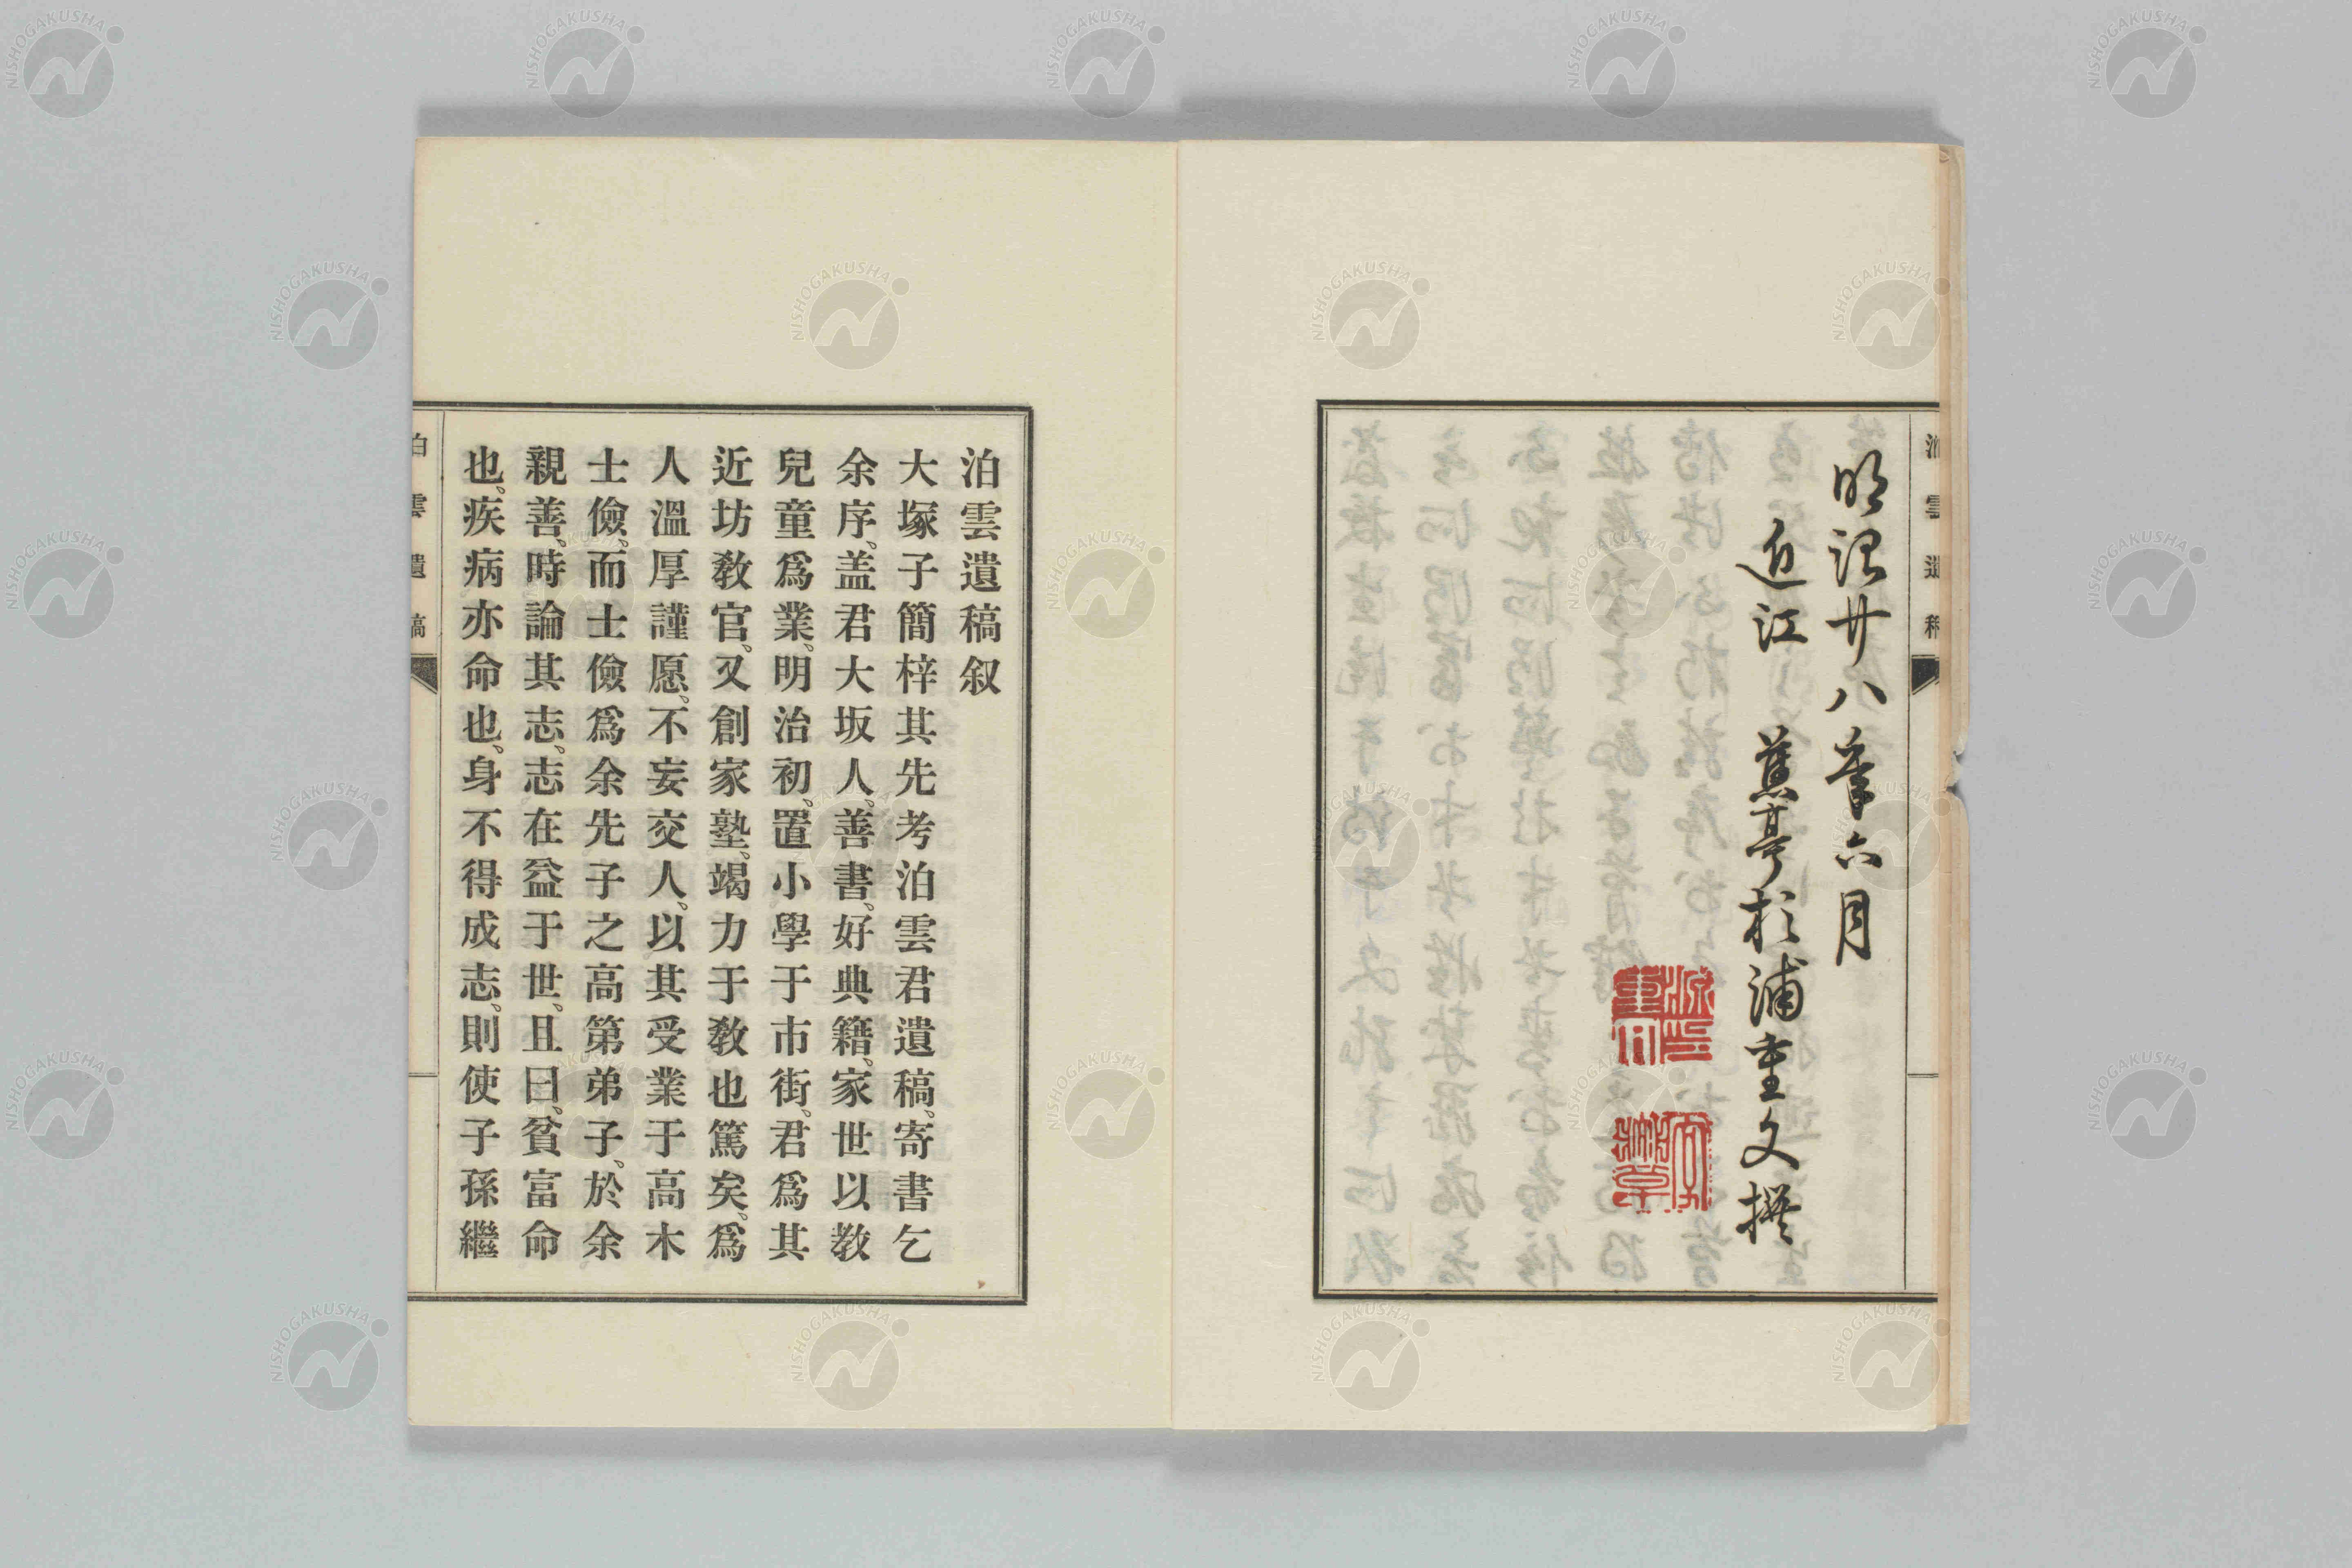 明治廿八年六月
近江 蕉亭杉浦重文撰
泊雲遺稿
泊雲遺稿叙
大塚子簡梓其先考泊雲君遺稿、寄書乞
余序。盖君大坂人。善書。好典籍。家世以敎
兒童爲業。明治初。置小學于市街。君爲其
近坊敎官。又創家塾。竭力于敎也篤矣。爲
人溫厚謹愿。不妄交人。以其受業于高木
士儉。而士儉爲余先子之高第弟子。於余
親善。時論其志。志在益于世。且曰。貧富命
也。疾病亦命也。身不得成志。則使子孫繼
泊雲遺稿
NISHOGAKUSHA